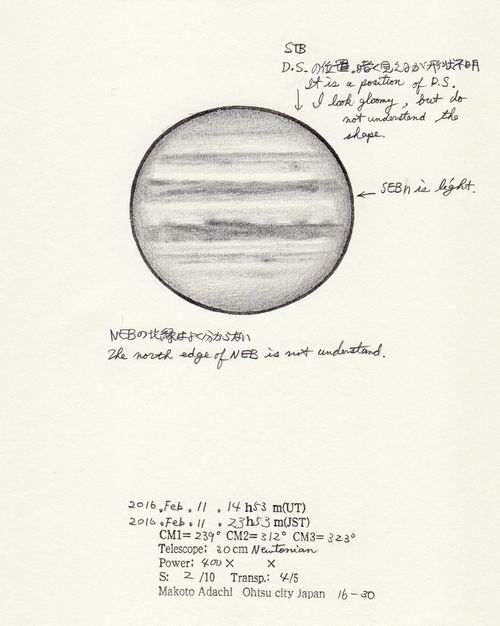 STB
D.S.の位置。暗く見えるが形状不明
It is a position of D.S.
I look gloomy, but do
not understand the
shape.
SEBn is light.
NEBの北縁はよく分からない
The north edge of NEB is not understand.
2016.Feb.11.14h53m(UT)
2016.Feb.11.23h53m(JST)
CM1=239° CM2=312° CM3=323°
Telescope: 30cm Newtonian
Power: 400× ×
S: 2/10 Transp.: 4/5
Makoto Adachi Ohtsu city Japan 16-30